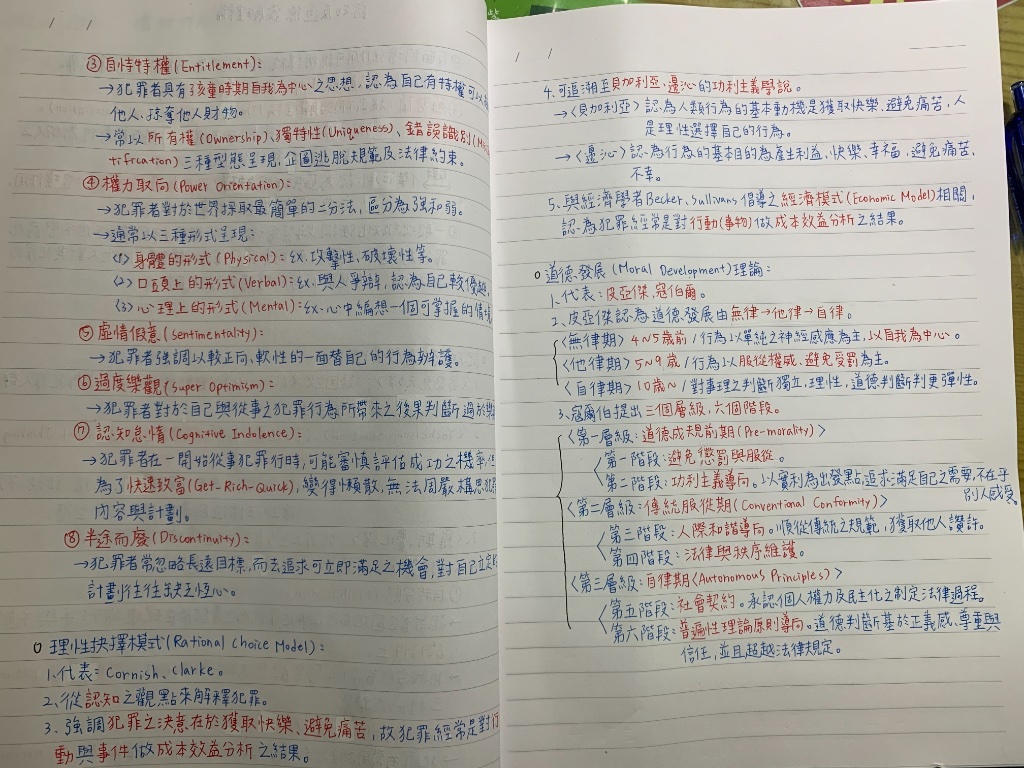 ③ 自恃特權(Entitlement):
→犯罪者具有孩童時期自我為中心之思想,認為自己有特權可以
他人、掠奪他人財物。
→常以所有權(Ownership)、獨特性(Uniqueness)、錯誤識別(
tification)三種型態呈現,企圖逃脫規範及法律約束。
④ 權力取向(Power Orientation):
→犯罪者對於世界採取最簡單的二分法,區分為強和弱。
→通常以三種形式呈現:
(1) 身體的形式(Physical):ex.攻擊性、破壞性等。
(2) 口頭上的形式(Verbal):ex.與人爭辯,認為自己較優越
(3) 心理上的形式(Mental):ex.心中編想一個可掌握的情境
⑤ 虛情假意(Sentimentality):
→犯罪者強調以較正向、軟性的一面替自己的行為辯護。
⑥ 過度樂觀(Super Optimism):
→犯罪者對於自己與從事之犯罪行為所帶來之後果判斷過於樂
⑦ 認知怠惰(Cognitive Indolence):
→犯罪者在一開始從事犯罪行時,可能審慎評估成功之機率,但
為了快速致富(Get-Rich-Quick),變得懶散,無法周嚴構思犯罪
內容與計劃。
⑧ 半途而廢(Discontinuity):
→犯罪者常忽略長遠目標,而去追求可立即滿足之機會,對自己立定
計劃往往缺乏恆心。
○ 理性抉擇模式(Rational Choice Model):
1、代表:Cornish、Clarke。
2、從認知之觀點來解釋犯罪。
3、強調犯罪之決意在於獲取快樂、避免痛苦,故犯罪經常是對行
動與事件做成本效益分析之結果。
4、可追溯至貝加利亞、邊沁的功利主義學說。
→〈貝加利亞〉認為人類行為的基本動機是獲取快樂、避免痛苦,人
是理性選擇自己的行為。
→〈邊沁〉認為行為的基本目的為產生利益、快樂、幸福,避免痛苦、
不幸。
5、與經濟學者Becker、Sullivans倡導之經濟模式(Economic Model)相關,
認為犯罪經常是對行動(事物)做成本效益分析之結果。
○ 道德發展(Moral Development)理論:
1、代表:皮亞傑、寇伯爾。
2、皮亞傑認為道德發展由無律→他律→自律。
〈無律期〉4~5歲前/行為以單純之神經感應為主,以自我為中心。
〈他律期〉5~9歲/行為以服從權威、避免受罰為主。
〈自律期〉10歲~/對事理之判斷獨立、理性,道德判斷判更彈性。
3、寇爾伯提出三個層級、六個階段。
〈第一層級:道德成規前期(Pre-morality)〉
〈第一階段:避免懲罰與服從。
第二階段:功利主義導向。以實利為出發點,追求滿足自己之需要,不在乎
別人感受。
〈第二層級:傳統服從期(Conventional Conformity)〉
〈第三階段:人際和諧導向。順從傳統之規範,獲取他人讚許。
第四階段:法律與秩序維護。
〈第三層級:自律期(Autonomous Principles)〉
〈第五階段:社會契約。承認個人權力及民主化之制定法律過程。
第六階段:普遍性理論原則導向。道德判斷基於正義感、尊重與
信任,並且超越法律規定。